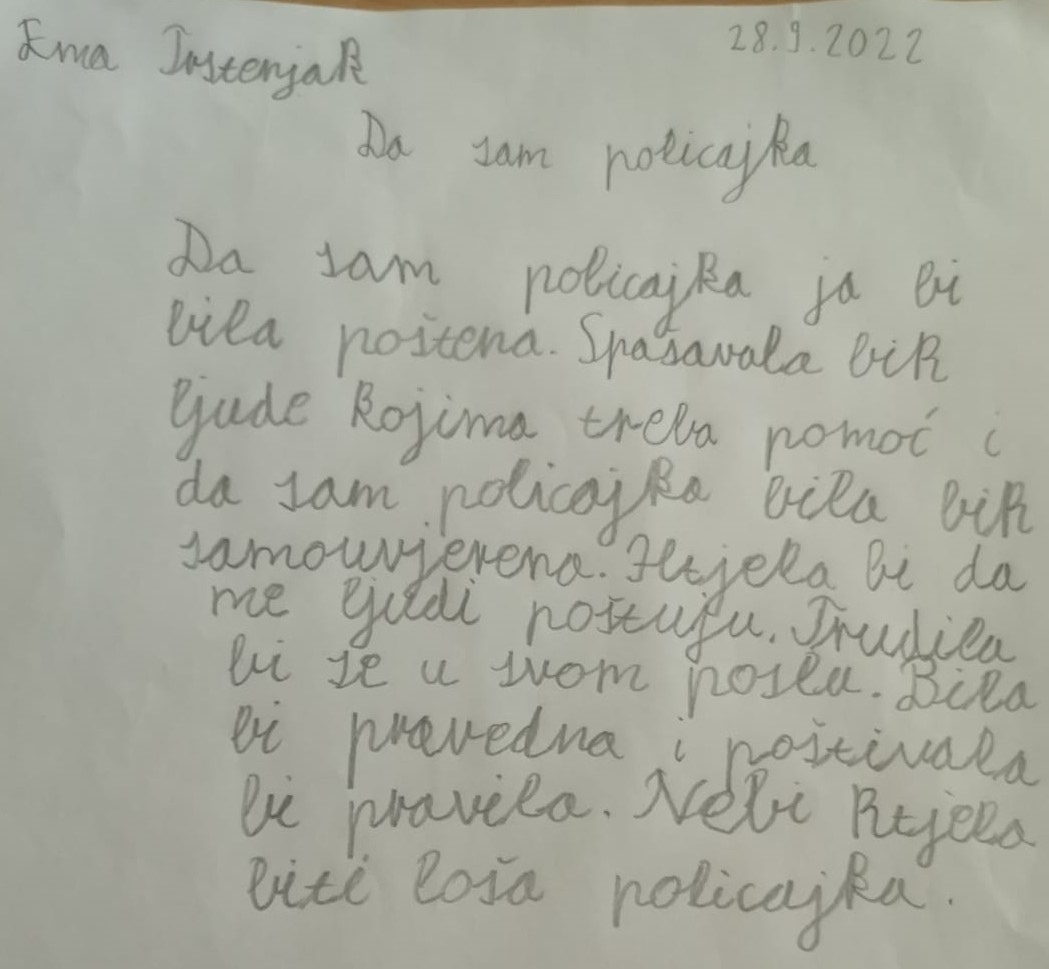 Ema Trstenjak 28.9.2022
Da sam policajka
Da sam policajka ja bi
bila poštena. Spašavala bih
ljude kojima treba pomoć i
da sam policajka bila bih
samouvjerena. Htjela bi da
me ljudi poštuju. Trudila
bi se u svom poslu. Bila
bi pravedna i poštivala
bi pravila. Nebi htjela
biti loša policajka.